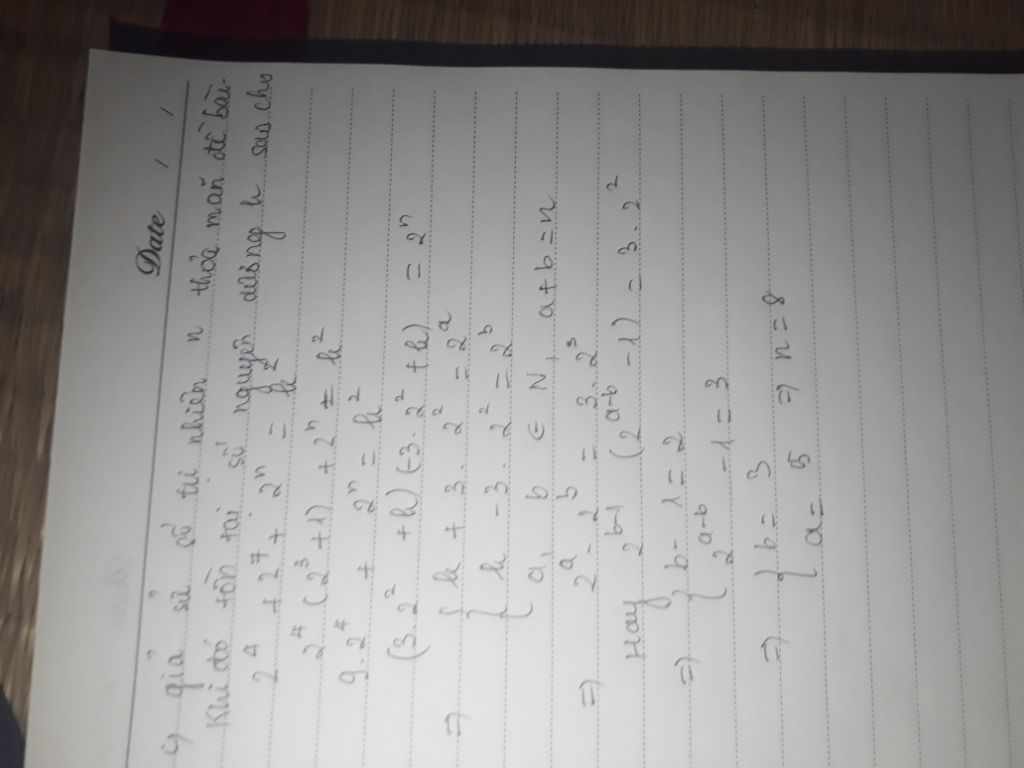 Date / /
g giả sử số tự nhiên n thỏa mãn đề bài.
Khi đó tồn tại số nguyên dương k sao cho
2^4 + 2^7 + 2^n = k^2
2^4 (2^3 + 1) + 2^n = k^2
9.2^4 + 2^n = k^2
(3.2^2 + k) (-3.2^2 + k) = 2^n
=> { k + 3.2^2 = 2^a
{ k - 3.2^2 = 2^b
a, b ∈ N, a + b = n
=> 2^a - 2^b = 3.2^3
Hay 2^{b-1} (2^{a-b} - 1) = 3.2^2
=> { b - 1 = 2
2^{a-b} - 1 = 3
=> { b = 3
a = 5 => n = 8